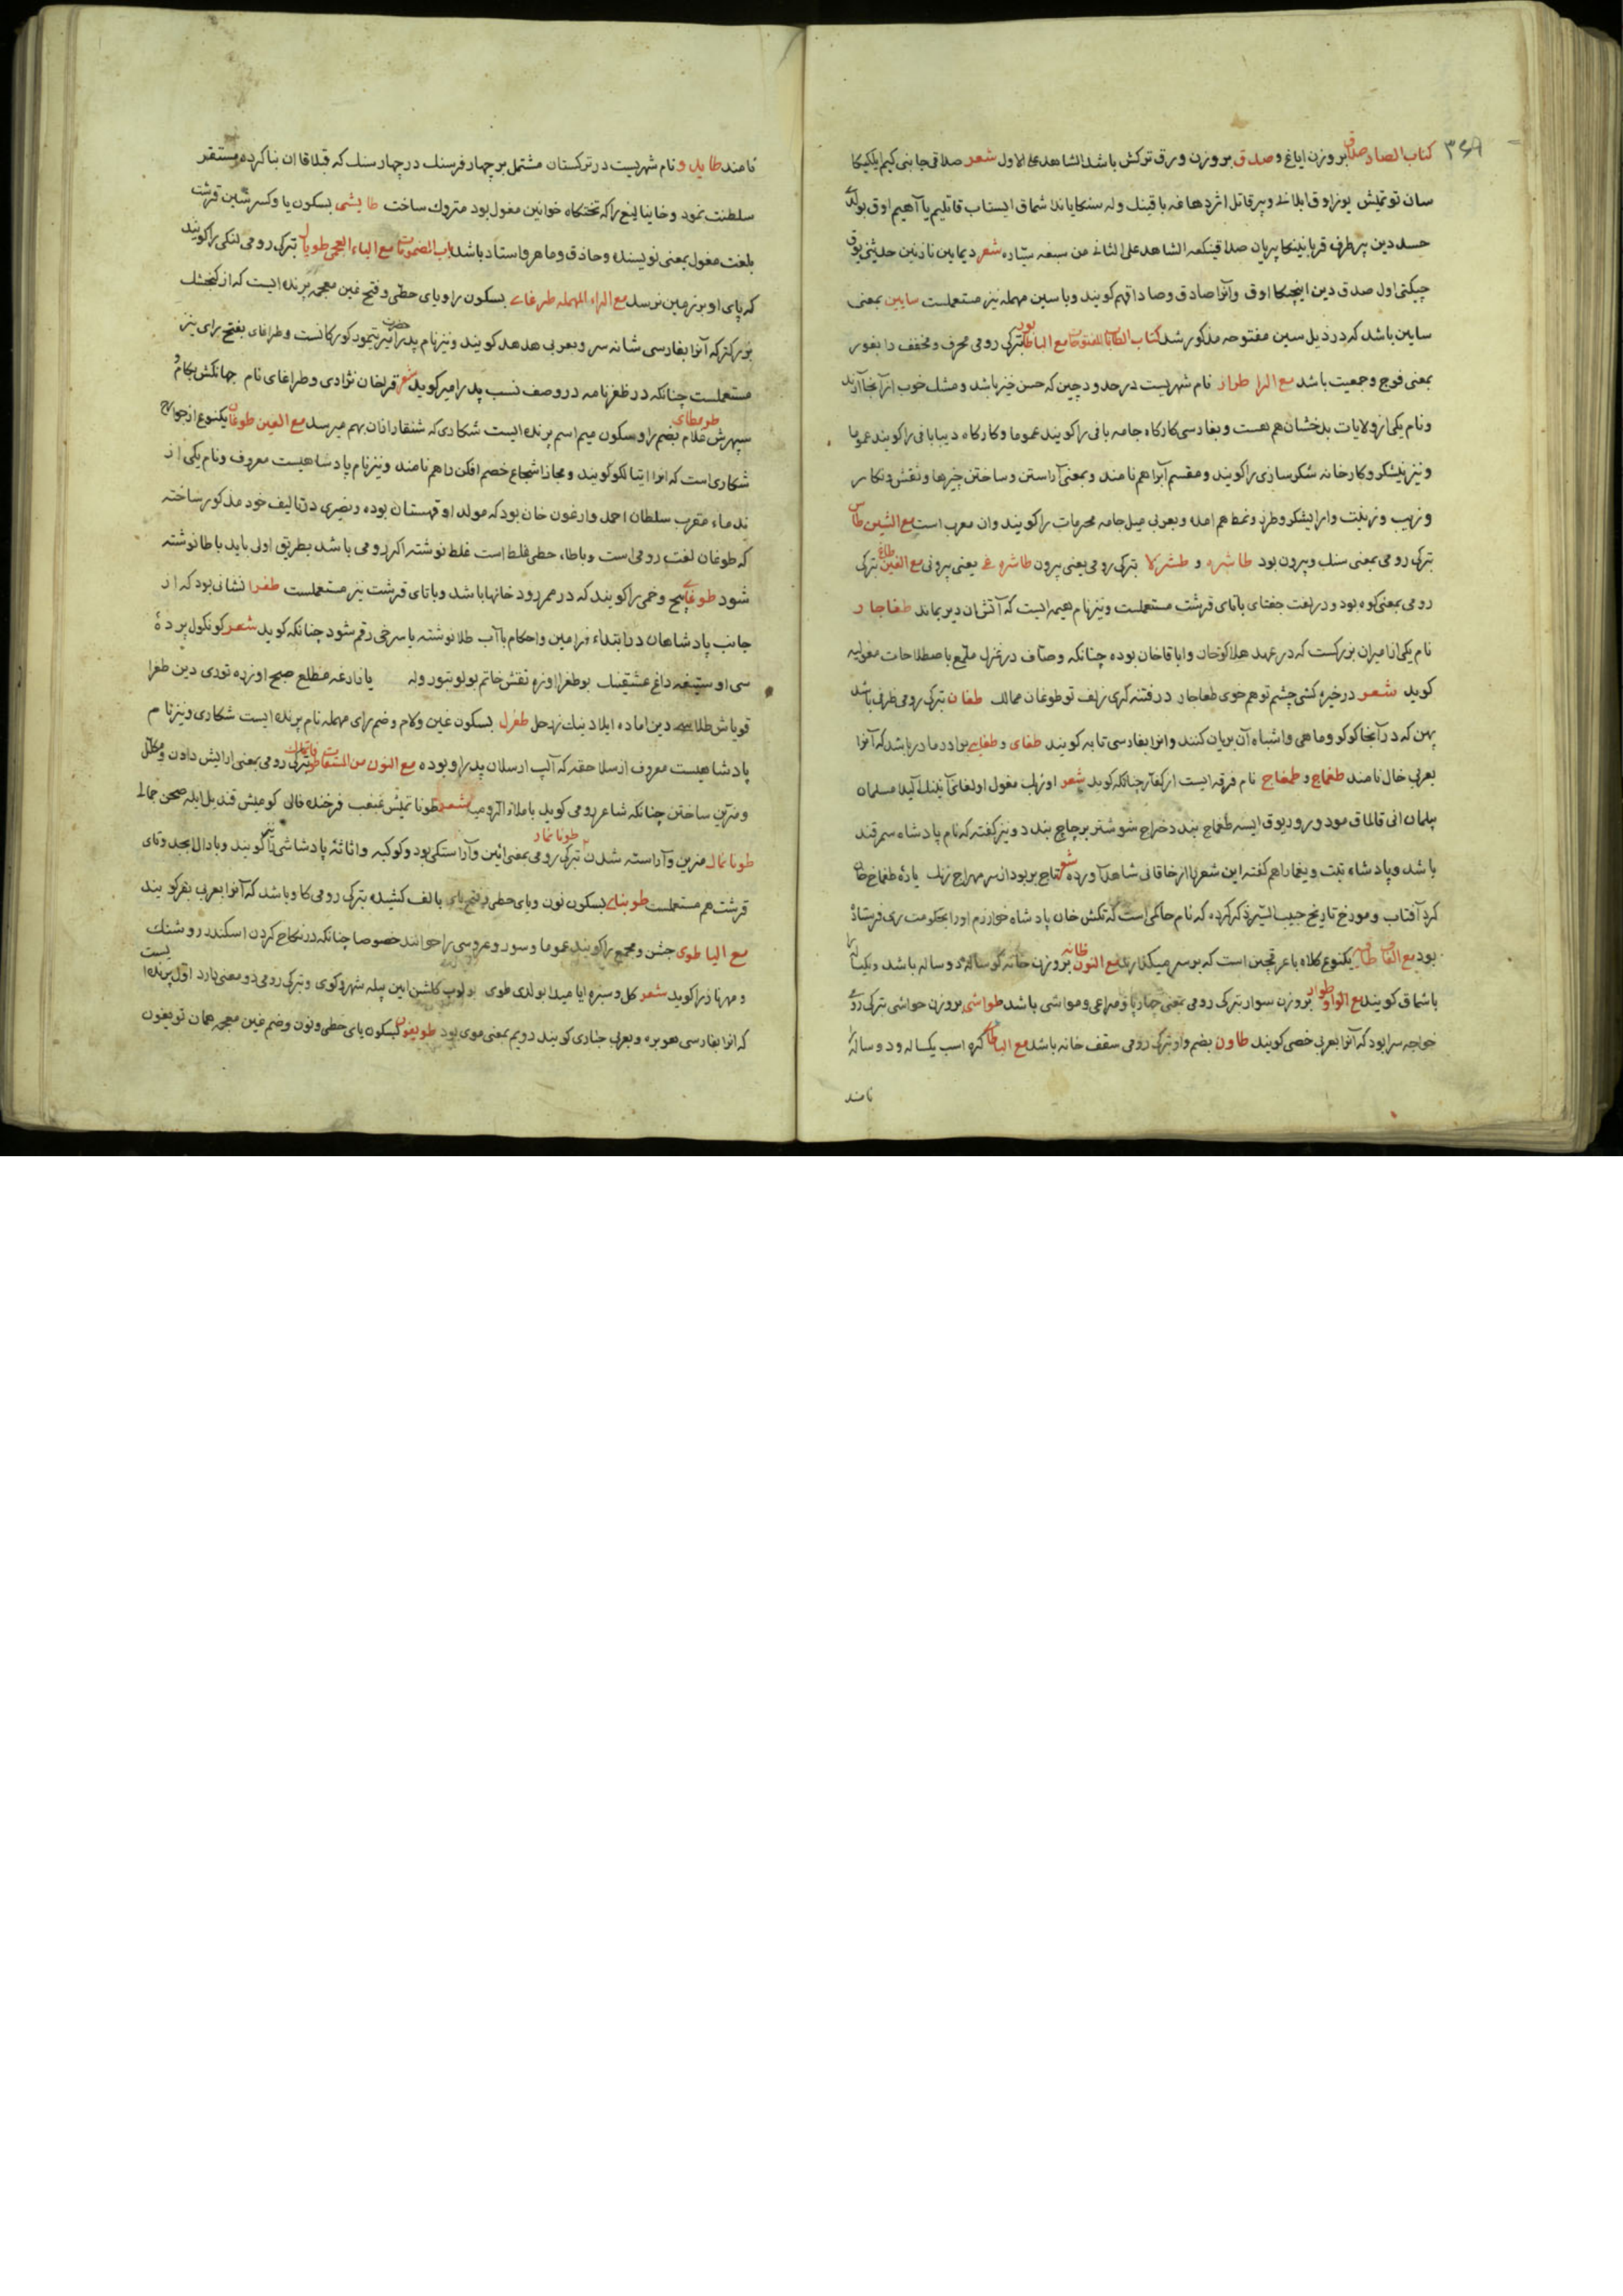 ۳۶۹
کتاب الصاد صداق بروزن ایاغ و صدق بروزن ورق ترکش باشد الشاهد علی الاول شعر صداقی جانبی کیم یلکیکا
سان توتمیش یوز اوق ایلانلا و بیر قاتل اژدهاغه باقینک وله سنکا یاندا شماق ایستاب قاتلیم یا آهیم اوق بولدی
حسد دین هر طرف قربانینکا پریان صداقینکمه الشاهد علی الثانی من سبعه سیاره شعر دیماین نازنین حدیثی یوق
چیکتی اول صدق دین اینچکا اوق وآنرا صادق وصاداقهم کویند وباسین مهمله نیز مستعملست سایین بمعنی
ساین باشد که در ذیل سین مفتوحه مذکور شد کتاب الطا باب المفتوحات مع البا طابور بترکی رومی محرف ومخفف دابغور
بمعنی فوج وجمعیت باشد مع الرا طراز نام شهریست در حدود چین که حسن خیز باشد ومشک خوب از آنجا آرند
ونام یکی از ولایات بدخشان هم هست وبفارسی کارکاه جامه بافی را کویند عموما وکارکاه دیبا بافی را کویند عموما
ونیز نیشکر وکارخانه شکر سازی را کویند ومقسم آبرا هم نامند وبمعنی آراستن وساختن چیزها ونقش ونکار
وزیب وزینت وارایشکر وطرز ونمط هم امده وبعربی میل جامه محرمات را کویند وان معرب است مع الشین طاش
بترکی رومی بمعنی سنک وبیرون بود طاشره و طشرلا بترکی رومی یعنی بیرون طاشره غی یعنی بیرونی مع الغین طاغ بترکی
رومی بمعنی کوه بود ودر لغت جغتای باتای قرشت مستعملست ونیز نام هیمه ایست که آتش ان دیر بماند طغاجار
نام یکی از امیران بزرکست که در عهد هلاکوخان واباقاخان بوده چنانکه وصاف در غزل ملمع باصطلاحات مغولیه
کوید شعر در خیره کشی چشم تو هم خوی طغاجار در فتنه کری زلف تو طوغان ممالک طغان بترکی رومی ظرفی باشد
پهن که در آنجا کوکو وماهی واشباه آن بریان کنند وانرا بفارسی تابه کویند طغای و طغایی برادر مادر باشد که آنرا
بعربی خال نامند طغماج و طمغاج نام فرقه ایست از کفار چنانکه کوید شعر
پیلمان انی قالماق مود ورود یوق ایسه طغماج بندد خراج شوشتر برچاچ بندد ونیز کفته که نام پادشاه سمرقند
باشد وپادشاه تبت ویغما را هم کفته این شعر را از خاقانی شاهد آورده شعر تاج بر بود از سر مهراج زنک یارهٔ طمغاج خان
کرد آفتاب ومورخ تاریخ حبیب السیر ذکر کرده که نام حاکمی است که تکش خان پادشاه خوارزم اورا بحکومت ری فرستاده
بود مع القاف طاقیه یکنوع کلاه باعرقچین است که بر سر میکذارند مع النون طانه بروزن خانه کوساله دو ساله باشد ویکساله را
باشماق کویند مع الواو طوار بروزن سوار بترکی رومی بمعنی چهارپا ومراعی ومواشی باشد طواشی بروزن حواشی بترکی رومی
خواجه سرا بود که آنرا بعربی خصی کویند طاون بضم واو بترکی رومی سقف خانه باشد مع الیا طای کره اسب یکساله ودوساله را
نامند
نامند طایدو نام شهریست در ترکستان مشتمل بر چهار فرسنک در چهار سنک که قبلاقاان بنا کرده مستقر
سلطنت نمود وخانبالیغ را که تختکاه خوانین مغول بود متروک ساخت طایشی بسکون یا وکسر شین قرشت
بلغت مغول بمعنی نویسنده وحاذق وماهر واستاد باشد باب المضمومات مع الباء العجمی طوپال بترکی رومی لنکی را کویند
که پای او بر زمین نرسد مع الراء المهمله طرغای بسکون را ویای حطی وفتح غین معجمه پرنده ایست که از کنجشک
بزرکتر که آنرا بفارسی شانه سر وبعربی هدهد کویند ونیز نام پدر حضرت امیر تیمور کورکانست وطراغای بفتح رای نیز
مستعملست چنانکه در ظفرنامه در وصف نسب پدر امیر کوید شعر قراخان نژادی وطراغای نام جهانکش بکام و
سپهرش غلام طورمطای بضم را وسکون میم اسم پرنده ایست شکاری که شنقار ازان بهم میرسد مع الغین طوغان یکنوع از جوارح
شکاری است که انرا ایتالکو کویند ومجازا شجاع خصم افکن را هم نامند ونیز نام پادشاهیست معروف ونام یکی از
ندماء مقرب سلطان احمد وارغون خان بود که مولد او قهستان بوده ونصیری در تالیف خود مذکور ساخته
که طوغان لغت رومی است وباطاء حطی غلط است غلط نوشته اکر رومی باشد بطریق اولی باید باطا نوشته
شود طوغای پیچ وخمی را کویند که در ممر رودخانها باشد وباتای قرشت نیز مستعملست طغرا نشانی بود که از
جانب پادشاهان در ابتداء فرامین واحکام باآب طلا نوشته یا سرخی رقم شود چنانکه کوید شعر کونکول پردهٔ
سی اوستیغه داغ عشقینک بو طغرا اوزره نقش خاتم بولوبتور وله یانادرغه مطلع صبح اوزره توردی دین طغرا
قویاش طلاسی دین اماده ایلادینک زرحل طغرل بسکون غین ولام وضم رای مهمله نام پرنده ایست شکاری ونیز نام
پادشاهیست معروف از سلاحقه که آلپ ارسلان پدر او بوده مع النون من المشتقات طوناتماق بترکی رومی بمعنی ارایش دادن ومکلل
ومزین ساختن چنانکه شاعر رومی کوید شعر طوناتمیش غبغب فرخنده فالن کومیش قندیل ایله صحن جمالی
طونانماق مزین وآراسته شدن طوناتمار بترکی رومی بمعنی آئین وآراستکی بود وکوکبه واثاثهٔ پادشاهی را نیز کویند وبادال ابجد وتای
قرشت هم مستعملست طوینای بسکون نون ویای حطی وفتح بای بالف کشیده بترکی رومی کاو باشد که آنرا بعربی بقر کویند
مع الیا طوی جشن ومجمع را کویند عموما وسور وعروسی را خوانند خصوصا چنانکه در نکاح کردن اسکندر روشنک
ومهرناز را کوید شعر کل وسبزه ایا میدا بولدی طوی بولوب کلشن این پیله شهر وکوی وبترکی رومی دو معنی دارد اول پرنده ایست
که انرا بفارسی هوبره وبعربی حباری کویند دویم بمعنی موی بود طویغون بسکون یای حطی ونون وضم غین معجمه همان تویغون